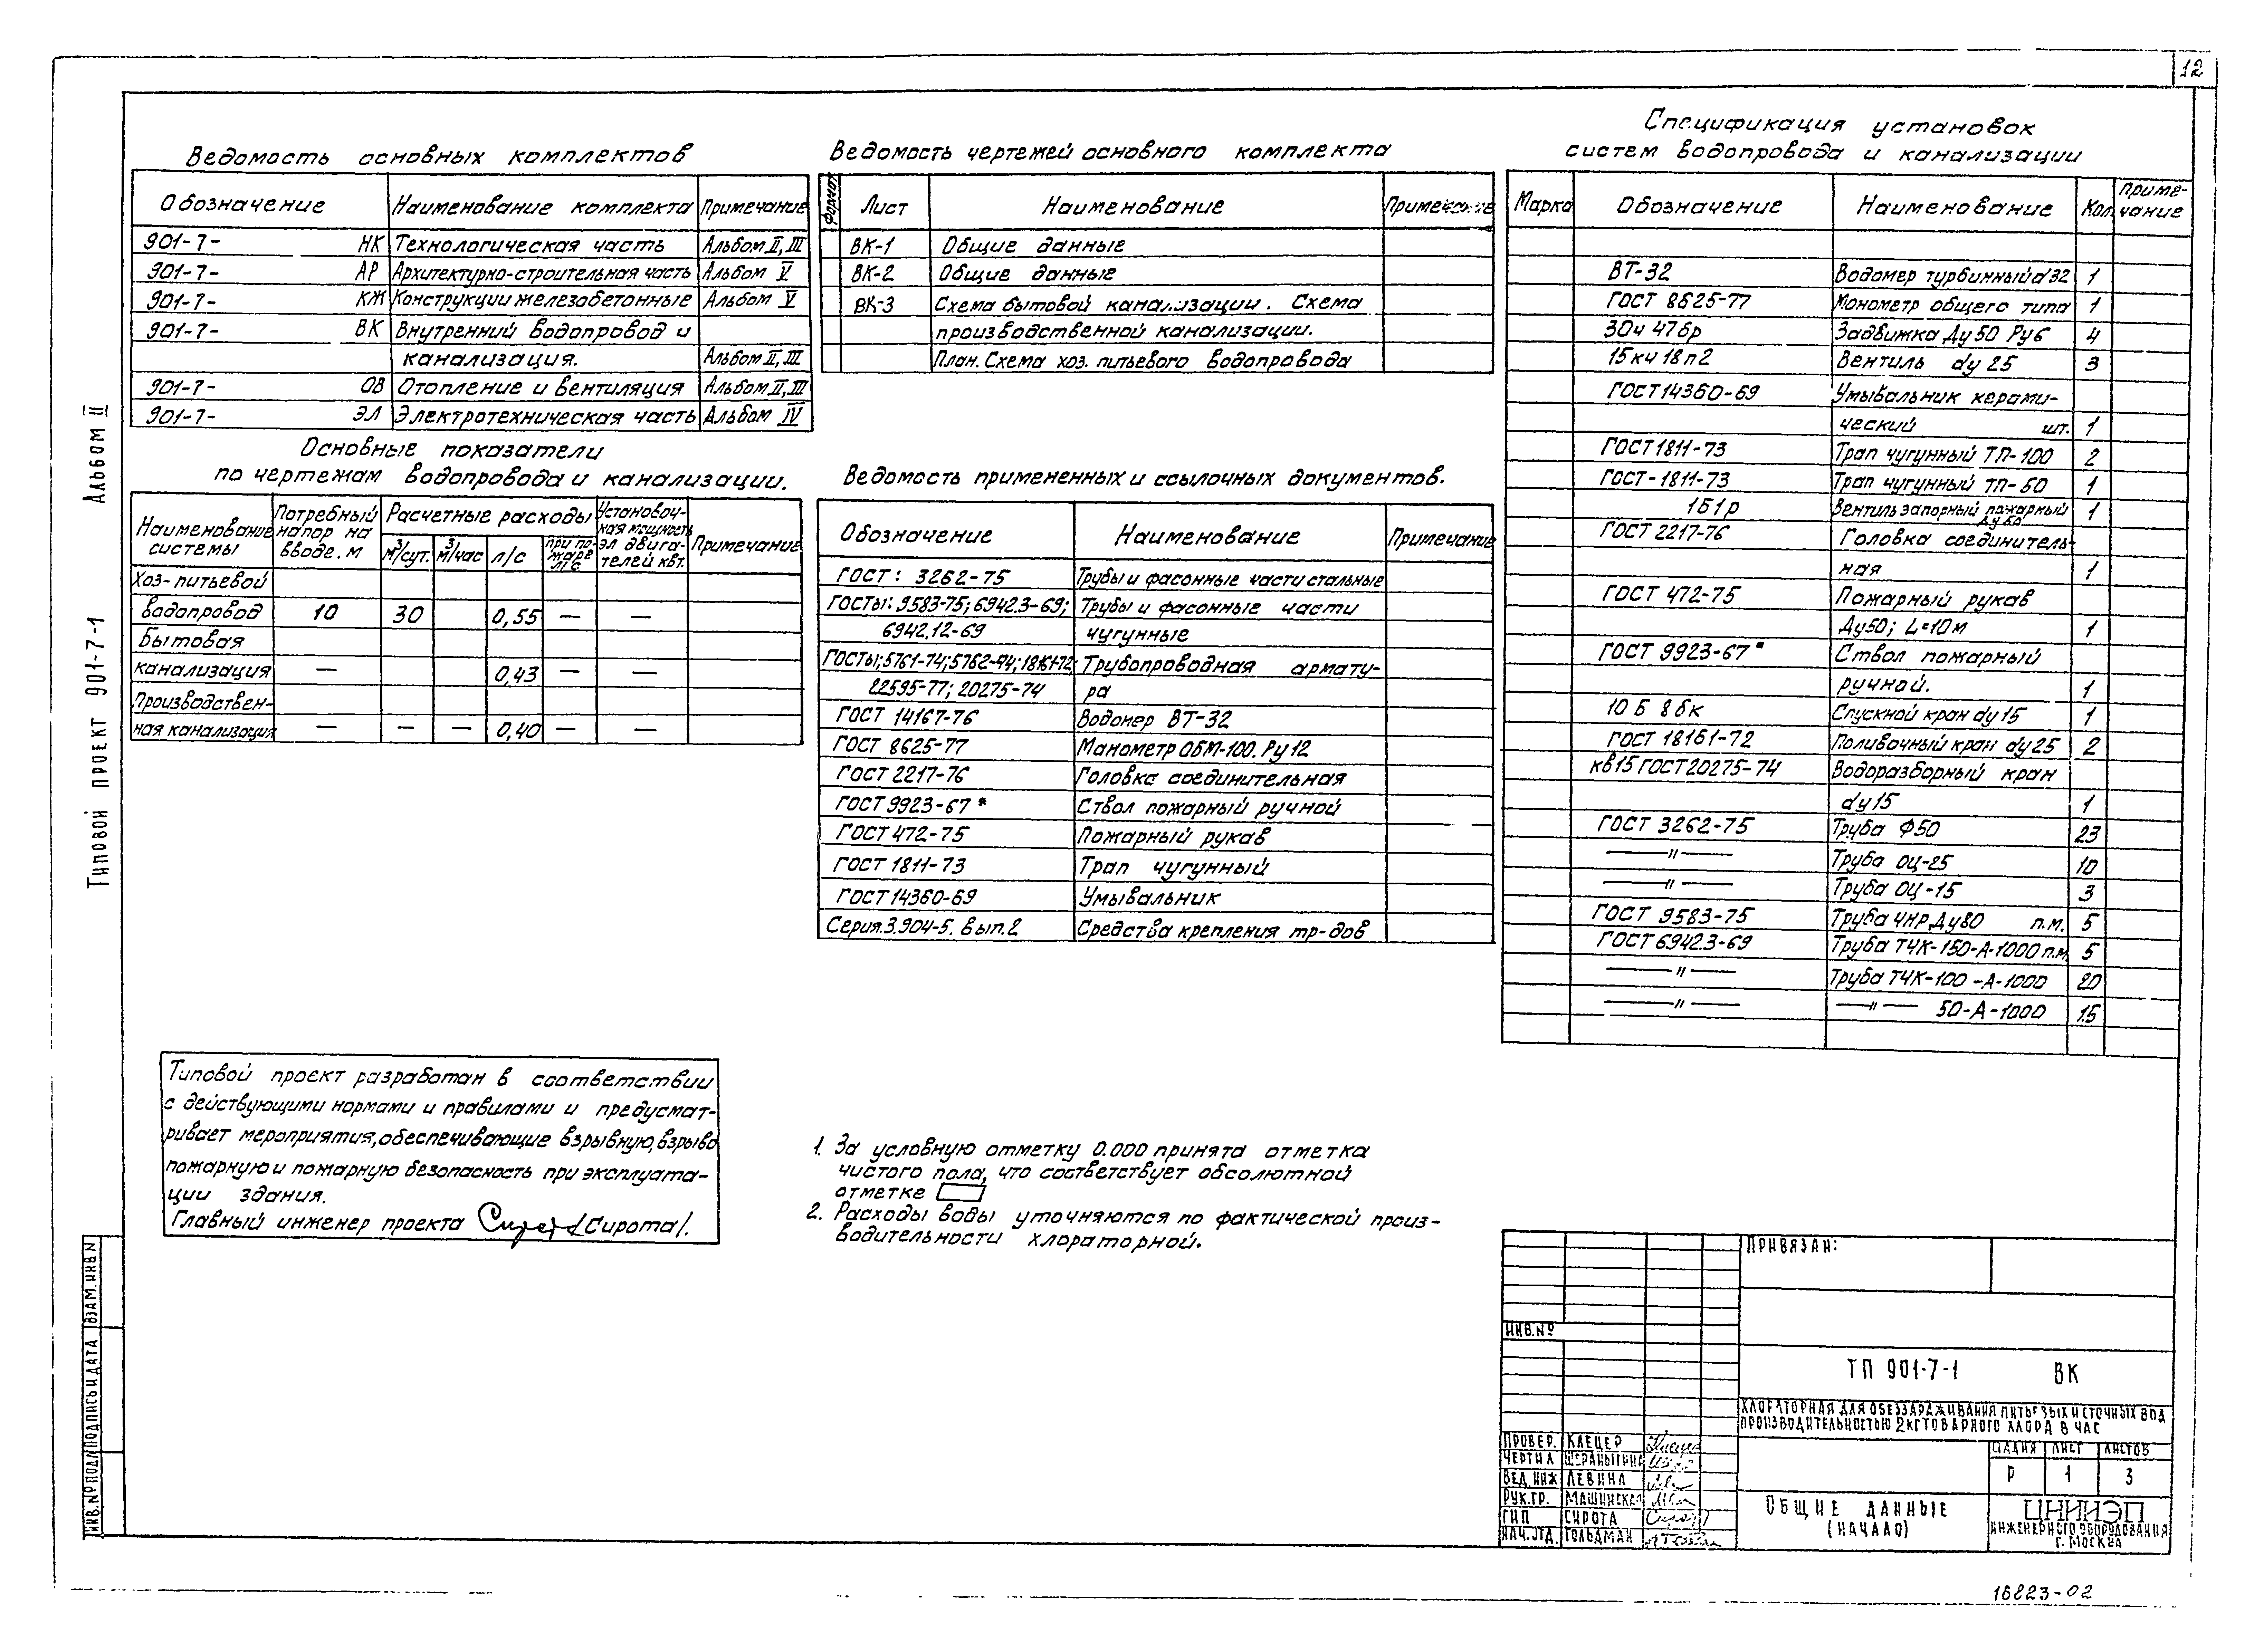 12
Ведомость основных комплектов
Обозначение Наименование комплекта Примечание
901-7- НК Технологическая часть Альбом II, III
901-7- АР Архитектурно-строительная часть Альбом V
901-7- КЖ Конструкции железобетонные Альбом V
901-7- ВК Внутренний водопровод и
канализация. Альбом II, III
901-7- ОВ Отопление и вентиляция Альбом II, III
901-7- ЭЛ Электротехническая часть Альбом IV
Основные показатели
по чертежам водопровода и канализации.
Наименование системы Потребный напор на вводе. м Расчетные расходы Установоч-ная мощность эл двига-телей квт. Примечание
м³/сут. м³/час л/с при по-жаре л/с
Хоз-питьевой
водопровод 10 30 0,55 — —
Бытовая
канализация — 0,43 — —
Производствен-
ная канализация — — — 0,40 — —
Ведомость чертежей основного комплекта
Формат Лист Наименование Примечание
ВК-1 Общие данные
ВК-2 Общие данные
ВК-3 Схема бытовой канализации. Схема
производственной канализации.
План. Схема хоз. питьевого водопровода
Ведомость примененных и ссылочных документов.
Обозначение Наименование Примечание
ГОСТ: 3262-75 Трубы и фасонные части стальные
ГОСТы: 9583-75; 6942.3-69; Трубы и фасонные части
6942.12-69 чугунные
ГОСТы; 5761-74; 5762-74; 18161-72; Трубопроводная армату-
22595-77; 20275-74 ра
ГОСТ 14167-76 Водомер ВТ-32
ГОСТ 8625-77 Манометр ОБМ-100. Ру 12
ГОСТ 2217-76 Головка соединительная
ГОСТ 9923-67* Ствол пожарный ручной
ГОСТ 472-75 Пожарный рукав
ГОСТ 1811-73 Трап чугунный
ГОСТ 14360-69 Умывальник
Серия.3.904-5. вып.2 Средства крепления тр-дов
Спецификация установок
систем водопровода и канализации
Марка Обозначение Наименование Кол. Приме-чание
ВТ-32 Водомер турбинный d 32 1
ГОСТ 8625-77 Монометр общего типа 1
30ч 47бр Задвижка Ду 50 Ру6 4
15кч 18п2 Вентиль dу 25 3
ГОСТ 14360-69 Умывальник керами-
ческий шт. 1
ГОСТ 1811-73 Трап чугунный ТП-100 2
ГОСТ-1811-73 Трап чугунный ТП-50 1
1б1р Вентиль запорный пожарный Ду50 1
ГОСТ 2217-76 Головка соединитель-
ная 1
ГОСТ 472-75 Пожарный рукав
Ду50; L=10м 1
ГОСТ 9923-67* Ствол пожарный
ручной. 1
10 Б 8бк Спускной кран dу 15 1
ГОСТ 18161-72 Поливочный кран dу 25 2
кв15 ГОСТ20275-74 Водоразборный кран
dу15 1
ГОСТ 3262-75 Труба Ф50 23
—〃— Труба ОЦ-25 10
—〃— Труба ОЦ-15 3
ГОСТ 9583-75 Труба ЧНР Ду80 п.м. 5
ГОСТ 6942.3-69 Труба ТЧК-150-А-1000 п.м. 5
—〃— Труба ТЧК-100-А-1000 20
—〃— —〃— 50-А-1000 15
Типовой проект разработан в соответствии
с действующими нормами и правилами и предусмат-
ривает мероприятия, обеспечивающие взрывную, взрыво
пожарную и пожарную безопасность при эксплуата-
ции здания.
Главный инженер проекта /Сирота/.
1. За условную отметку 0.000 принята отметка
чистого пола, что соответствует абсолютной
отметке
2. Расходы воды уточняются по фактической произ-
водительности хлораторной.
Типовой проект 901-7-1 Альбом II
ИНВ.№ ПОДЛ ПОДПИСЬ И ДАТА ВЗАМ. ИНВ N
ПРИВЯЗАН:
ИНВ.№
ТП 901-7-1 ВК
ХЛОРАТОРНАЯ ДЛЯ ОБЕЗЗАРАЖИВАНИЯ ПИТЬЕВЫХ И СТОЧНЫХ ВОД
ПРОИЗВОДИТЕЛЬНОСТЬЮ 2КГ ТОВАРНОГО ХЛОРА В ЧАС
ПРОВЕР. КЛЕЦЕР
ЧЕРТИЛ
ВЕД. ИНЖ ЛЕВИНА
РУК.ГР. МАШИНСКАЯ
ГИП СИРОТА
НАЧ.ОТД. ГОЛЬДМАН
СТАДИЯ ЛИСТ ЛИСТОВ
Р 1 3
ОБЩИЕ ДАННЫЕ
(НАЧАЛО)
ЦНИИЭП
ИНЖЕНЕРНОГО ОБОРУДОВАНИЯ
Г. МОСКВА
16823-02